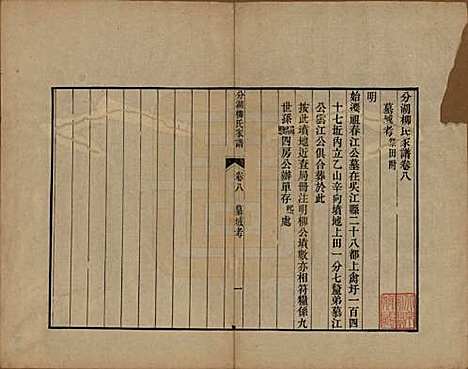 分湖柳氏家譜卷八
墓域考 祭田附
明
始遷祖春江公墓在吳江縣二十八都上禽圩一百四
十七坵內立乙山辛向墳墟上田一分七釐弟慕江
公雲江公俱合葬於此
按此墳墟近查局冊注明柳公墳數亦相符糧係九
世孫 四房公辦單存 處
分湖柳氏家譜
卷八
墓域考
一